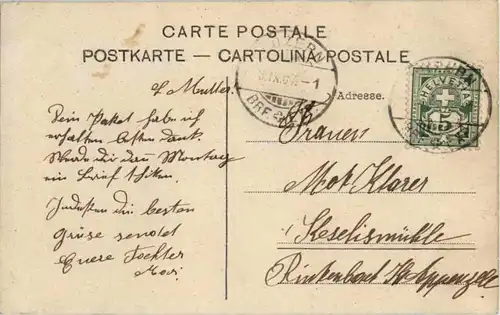 CARTE POSTALE
POSTKARTE — CARTOLINA POSTALE
L. Mutter!
Dein Paket habe ich
erhalten besten Dank.
Werde dir dan Montag
ein Brief schiken.
Indessen die besten
grüse sendet
Euere Tochter
Adresse.
Frauen
Klarer
Keselismühle
Rinkenbach Kt. Appenzell
LUZERN
BRF.
HELVETIA
5